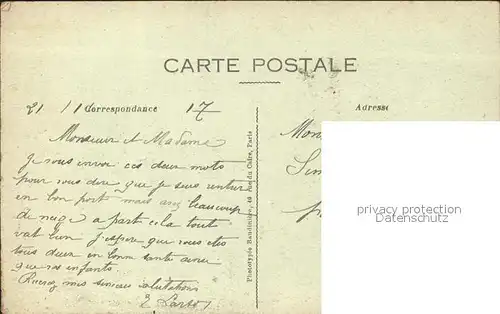 CARTE POSTALE
21 11 Correspondance 17
Adresse
Monsieur et Madame
Je vous envoi ces deux mots
pour vous dire que je suis rentrer
en bon port mais avec beaucoup
de neige a part cela tout
vat bien j'espère que vous etes
tous deux en bonne sante ainsi
que vos enfants
Recevez mes sincères salutations
Phototypie Baudinière, rue du Caire, Paris
privacy protection
Datenschutz